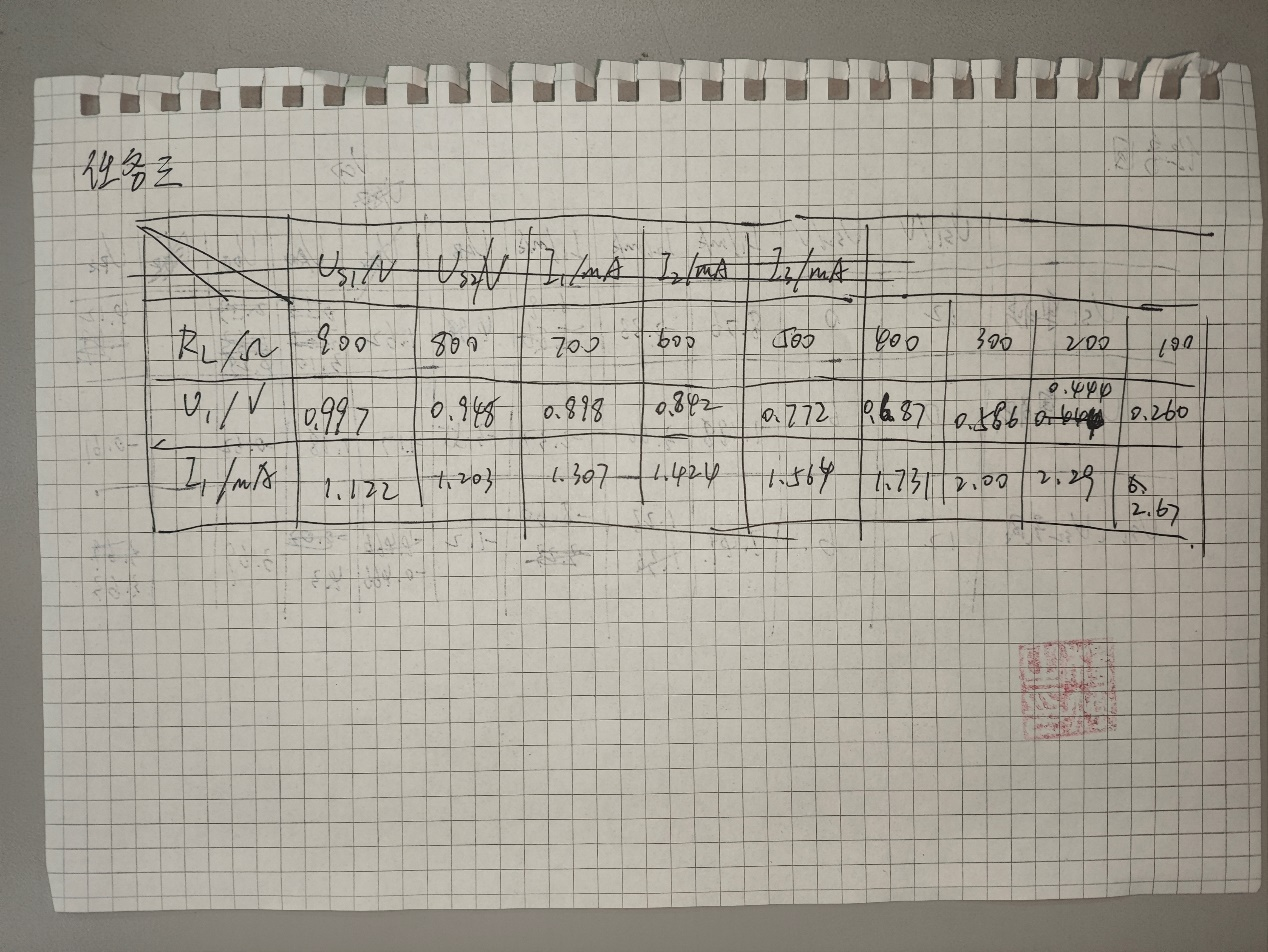 任务三
U_S1/V U_S2/V I_1/mA I_2/mA I_3/mA
R_L/Ω 900 800 700 600 500 400 300 200 100
0.444
U_1/V 0.997 0.948 0.898 0.842 0.772 0.687 0.586 0.260
I_1/mA 1.122 1.203 1.307 1.424 1.564 1.731 2.00 2.29 2.67